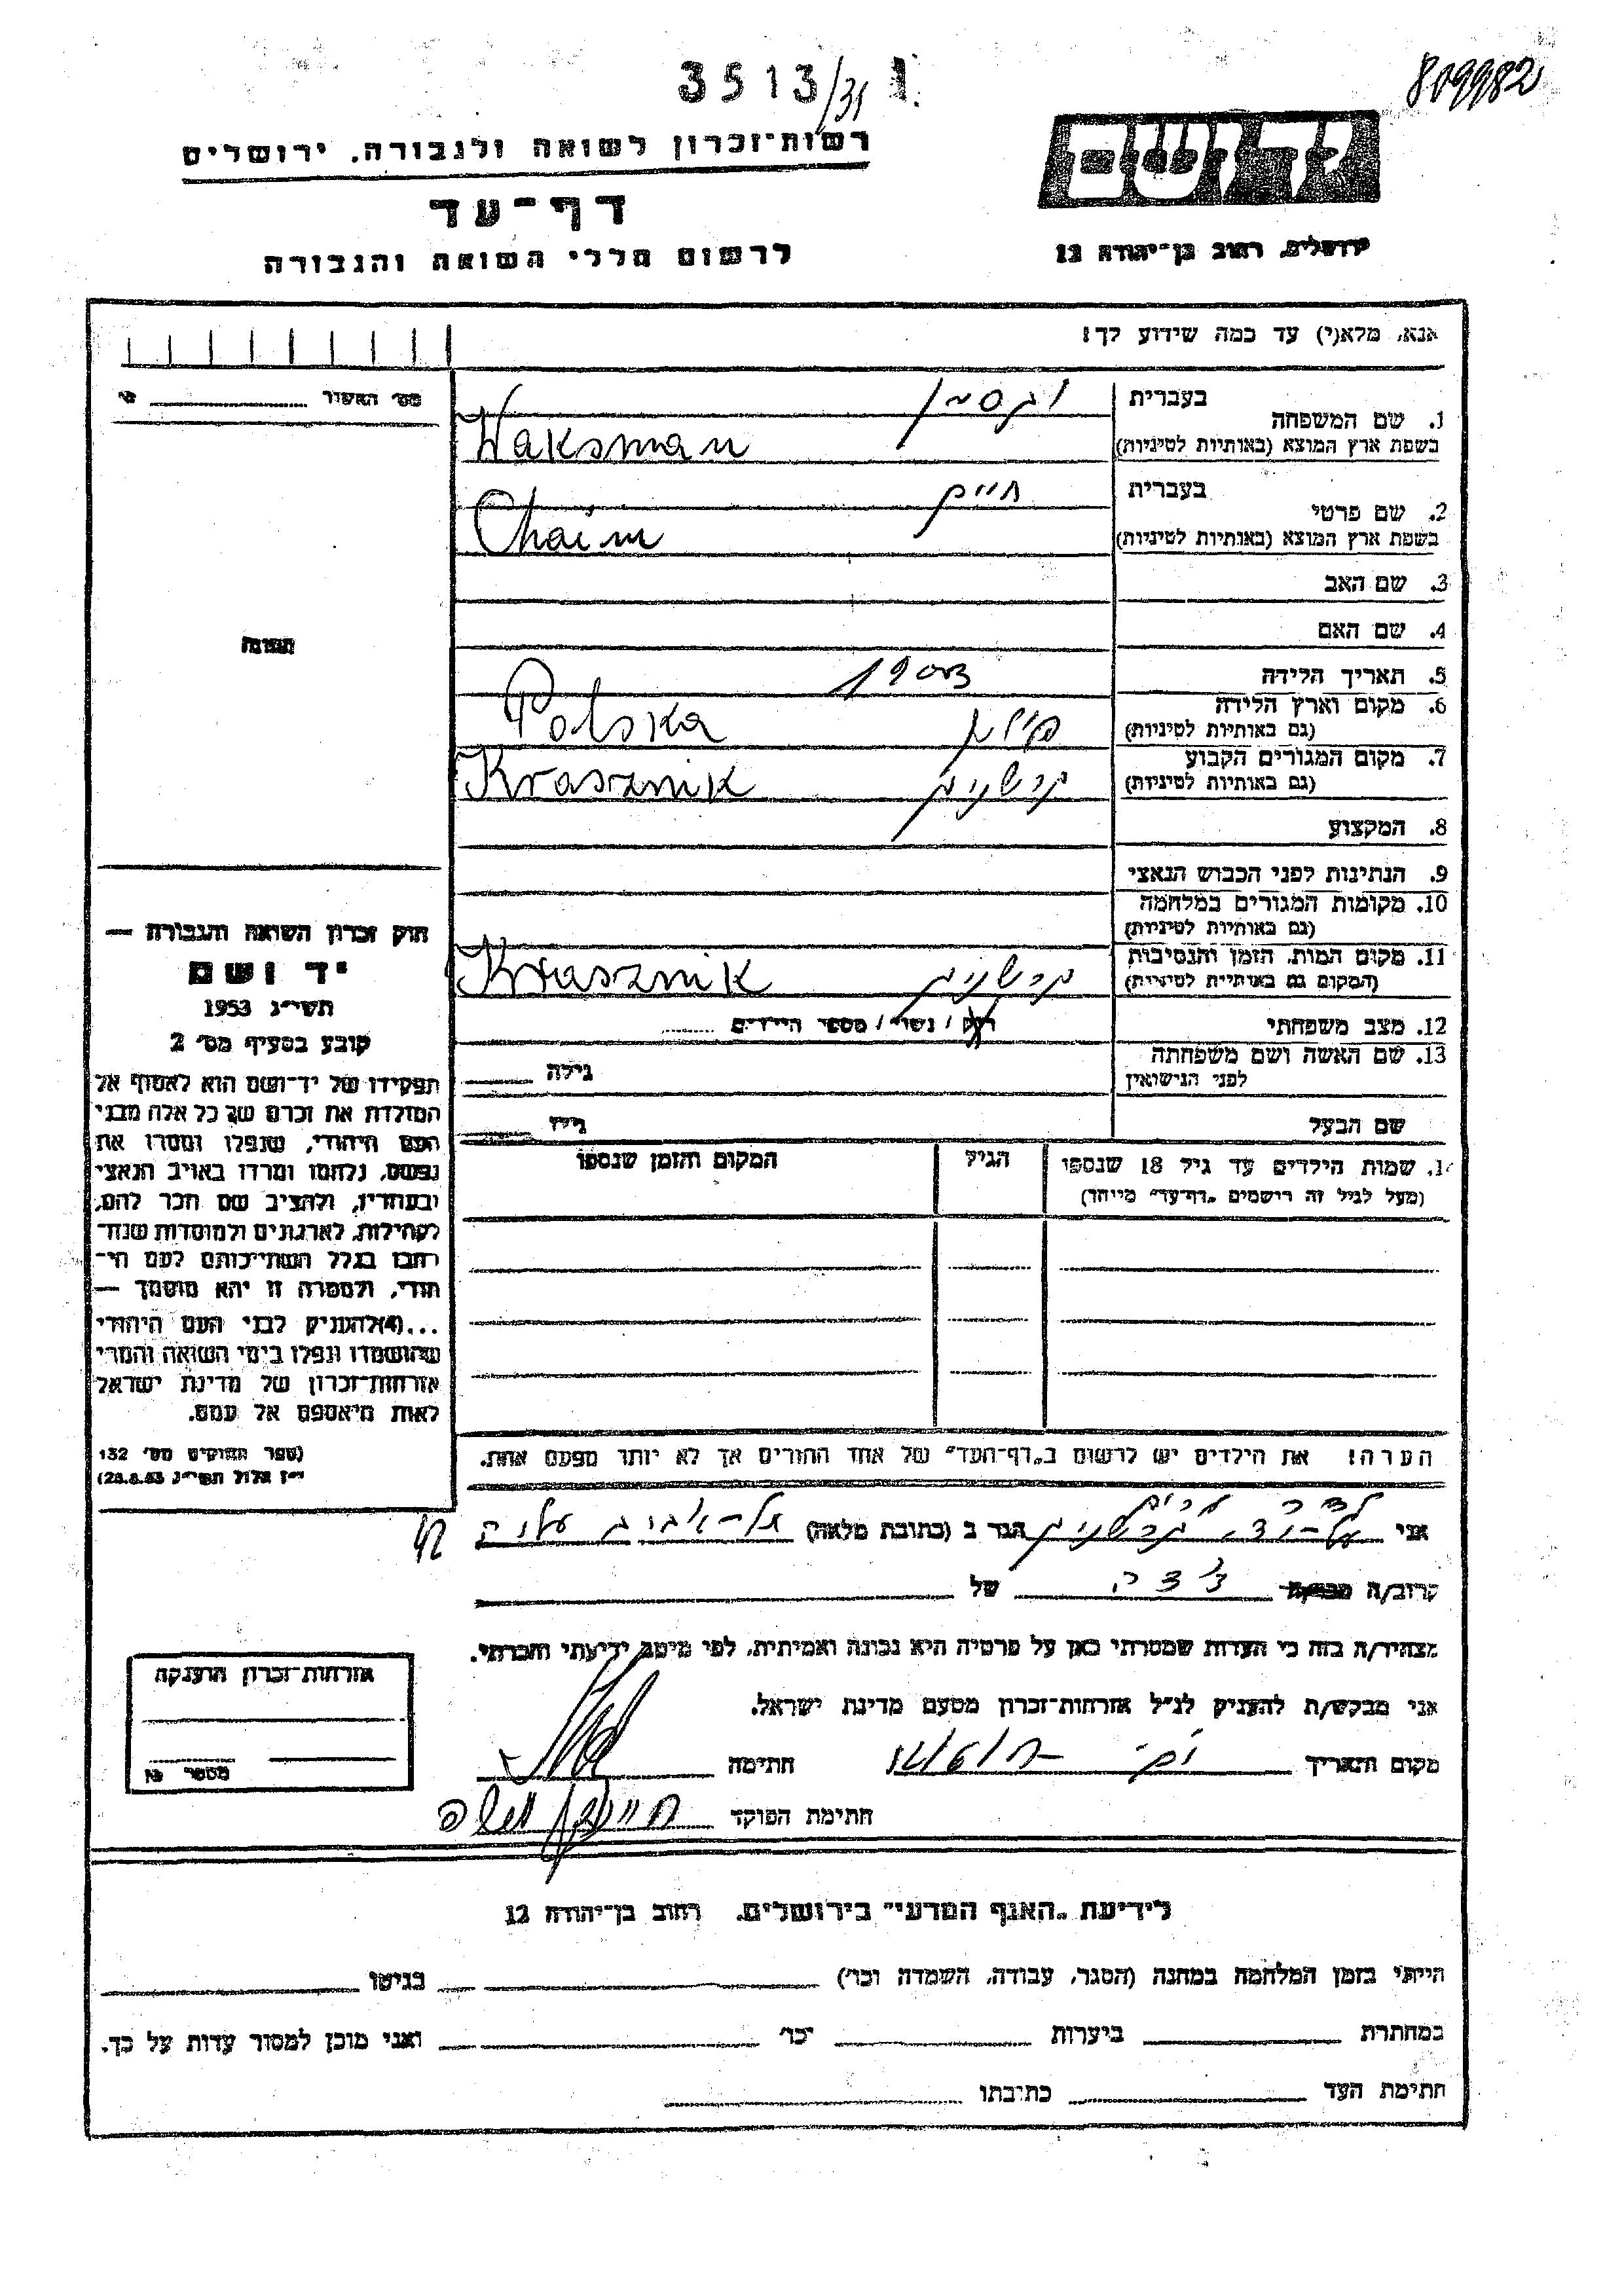 3513/31 1
809982
רשות־זכרון לשואה ולגבורה, ירושלים
יד ושם
דף־עד
לרשום חללי השואה והגבורה
ירושלים, רחוב בן־יהודה 12
אנא, מלא(י) עד כמה שידוע לך!
מס׳ האשור
1. שם המשפחה
בעברית וקסמן
בשפת ארץ המוצא (באותיות לטיניות) Waksman
2. שם פרטי
בעברית חיים
בשפת ארץ המוצא (באותיות לטיניות) Chaim
3. שם האב
4. שם האם
תמונה
5. תאריך הלידה 1903
6. מקום וארץ הלידה
(גם באותיות לטיניות) פולין Polska
7. מקום המגורים הקבוע
(גם באותיות לטיניות) קרשניק Krasznik
8. המקצוע
9. הנתינות לפני הכבוש הנאצי
10. מקומות המגורים במלחמה
(גם באותיות לטיניות)
11. מקום המות, הזמן והנסיבות
(המקום גם באותיות לטיניות) קרשניק Krasznik
12. מצב משפחתי רוק / נשוי / מספר הילדים
13. שם האשה ושם משפחתה
לפני הנישואין גילה
שם הבעל גילו
14. שמות הילדים עד גיל 18 שנספו הגיל המקום והזמן שנספו
(מעל לגיל זה רישמים „דף־עד״ מייחד)
חוק זכרון השואה והגבורה —
יד ושם
תשי״ג 1953
קובע בסעיף מס׳ 2
תפקידו של יד־ושם הוא לאסוף אל
המולדת את זכרם של כל אלה מבני
העם היהודי, שנפלו ומסרו את
נפשם, נלחמו ומרדו באויב הנאצי
ובעוזריו, ולהציב שם וזכר להם,
לקהילות, לארגונים ולמוסדות שנח־
רחבו בגלל השתייכותם לעם הי־
הודי, ולמטרה זו יהא מוסמך —
...(4)להעניק לבני העם היהודי
שהושמדו ונפלו בימי השואה והמרי
אזרחות־זכרון של מדינת ישראל
לאות היאספם אל עמם.
(ספר החוקים מס׳ 132
י״ז אלול תשי״ג 28.8.53)
הערה! את הילדים יש לרשום ב„דף־העד״ של אחד ההורים אך לא יותר מפעם אחת.
אני קרשניק הגר ב (כתובת מלאה) תל־אביב 42
קרוב/ה של
מצהיר/ה בזה כי העדות שמסרתי כאן על פרטיה היא נכונה ואמיתית, לפי מיטב ידיעתי והכרתי.
אני מבקש/ת להעניק לנ״ל אזרחות־זכרון מטעם מדינת ישראל.
מקום ותאריך חתימה
חתימת הפוקד
אזרחות־זכרון הוענקה
מספר
לידיעת „האגף המדעי״ בירושלים, רחוב בן־יהודה 12
הייתי בזמן המלחמה במחנה (הסגר, עבודה, השמדה וכו׳) בגיטו
במחתרת ביערות וכו׳ ואני מוכן למסור עדות על כך.
חתימת העד כתובתו